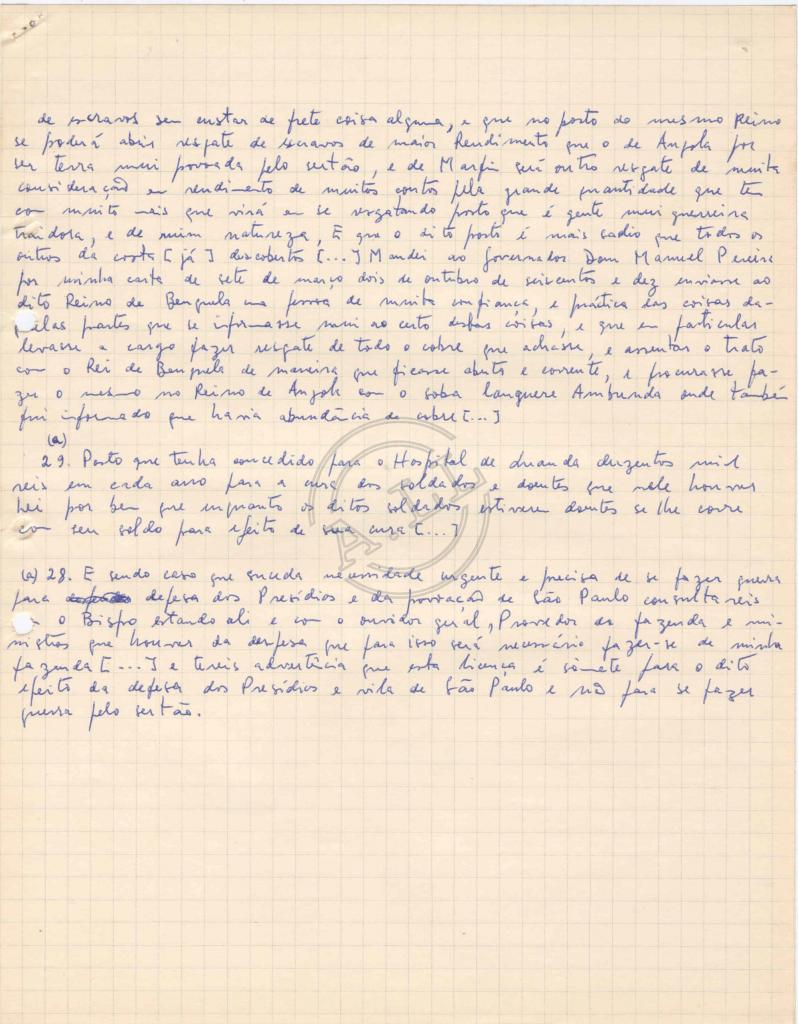 de escravos sem custar de frete coisa alguma, e que no porto do mesmo Reino
se poderá abrir resgate de escravos de maior Rendimento que o de Angola por
ser terra mui povoada pelo sertão, e de Marfim será outro resgate de muita
consideração em rendimento de muitos contos pela grande quantidade que tem
com muito mais que virá em se resgatando posto que é gente mui guerreira
traidora, e de ruim natureza, E que o dito porto é mais sadio que todos os
outros da costa [já] descobertos [...] Mandei ao Governador Dom Manuel Pereira
por minha carta de sete de março dois de outubro de seiscentos e dez enviasse ao
dito Reino de Benguela uma pessoa de muita confiança, e prática das coisas da-
quelas partes que se informasse mui ao certo destas coisas, e que em particular
levasse a cargo fazer resgate de todo o cobre que achasse, e assentar o trato
com o Rei de Benguela de maneira que ficasse aberto e corrente, e procurasse fa-
zer o mesmo no Reino de Angola com o soba Languere Ambunda onde também
fui informado que havia abundância de cobre [...]
(a)
29. Posto que tenha concedido para o Hospital de Luanda duzentos mil
reis em cada ano para a cura dos soldados e doentes que nele houver
hei por bem que enquanto os ditos soldados estiverem doentes se lhe corre
com seu soldo para efeito de sua cura [...]
(a) 28. E sendo caso que suceda necessidade urgente e precisa de se fazer guerra
para defesa dos Presídios e da povoação de São Paulo consultareis
o Bispo estando ali e com o ouvidor geral, Provedor da fazenda e mi-
nistros que houver da despesa que para isso será necessário fazer-se de minha
fazenda [...] e tereis advertência que esta licença é sòmete para o dito
efeito da defesa dos Presídios e vila de São Paulo e não para se fazer
guerra pelo sertão.